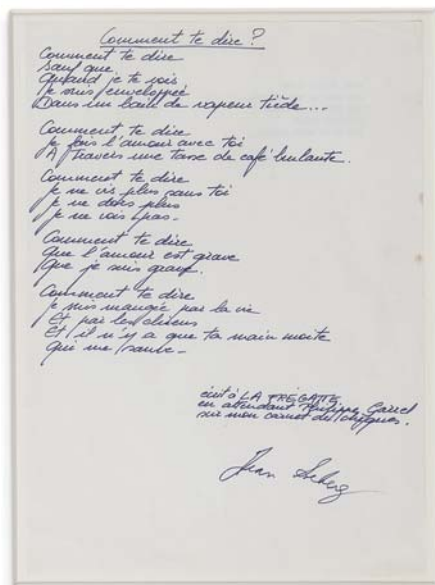 Comment te dire ?
Comment te dire
Sauf que
Quand je te vois
Je suis enveloppée
Dans un bain de vapeur tiède...
Comment te dire
Je fais l'amour avec toi
A travers une tasse de café brulante.
Comment te dire
Je ne vis plus sans toi
Je ne dors plus
Je ne vois pas.
Comment te dire
Que l'amour est grave
Que je suis grave.
Comment te dire
Je suis mangée par la vie
Et par les chiens
Et il n'y a que ta main moite
Qui me sauve.
écrit à LA FRÉGATE
en attendant Philippe Garrel
sur mon carnet de chèques.
Jean Seberg